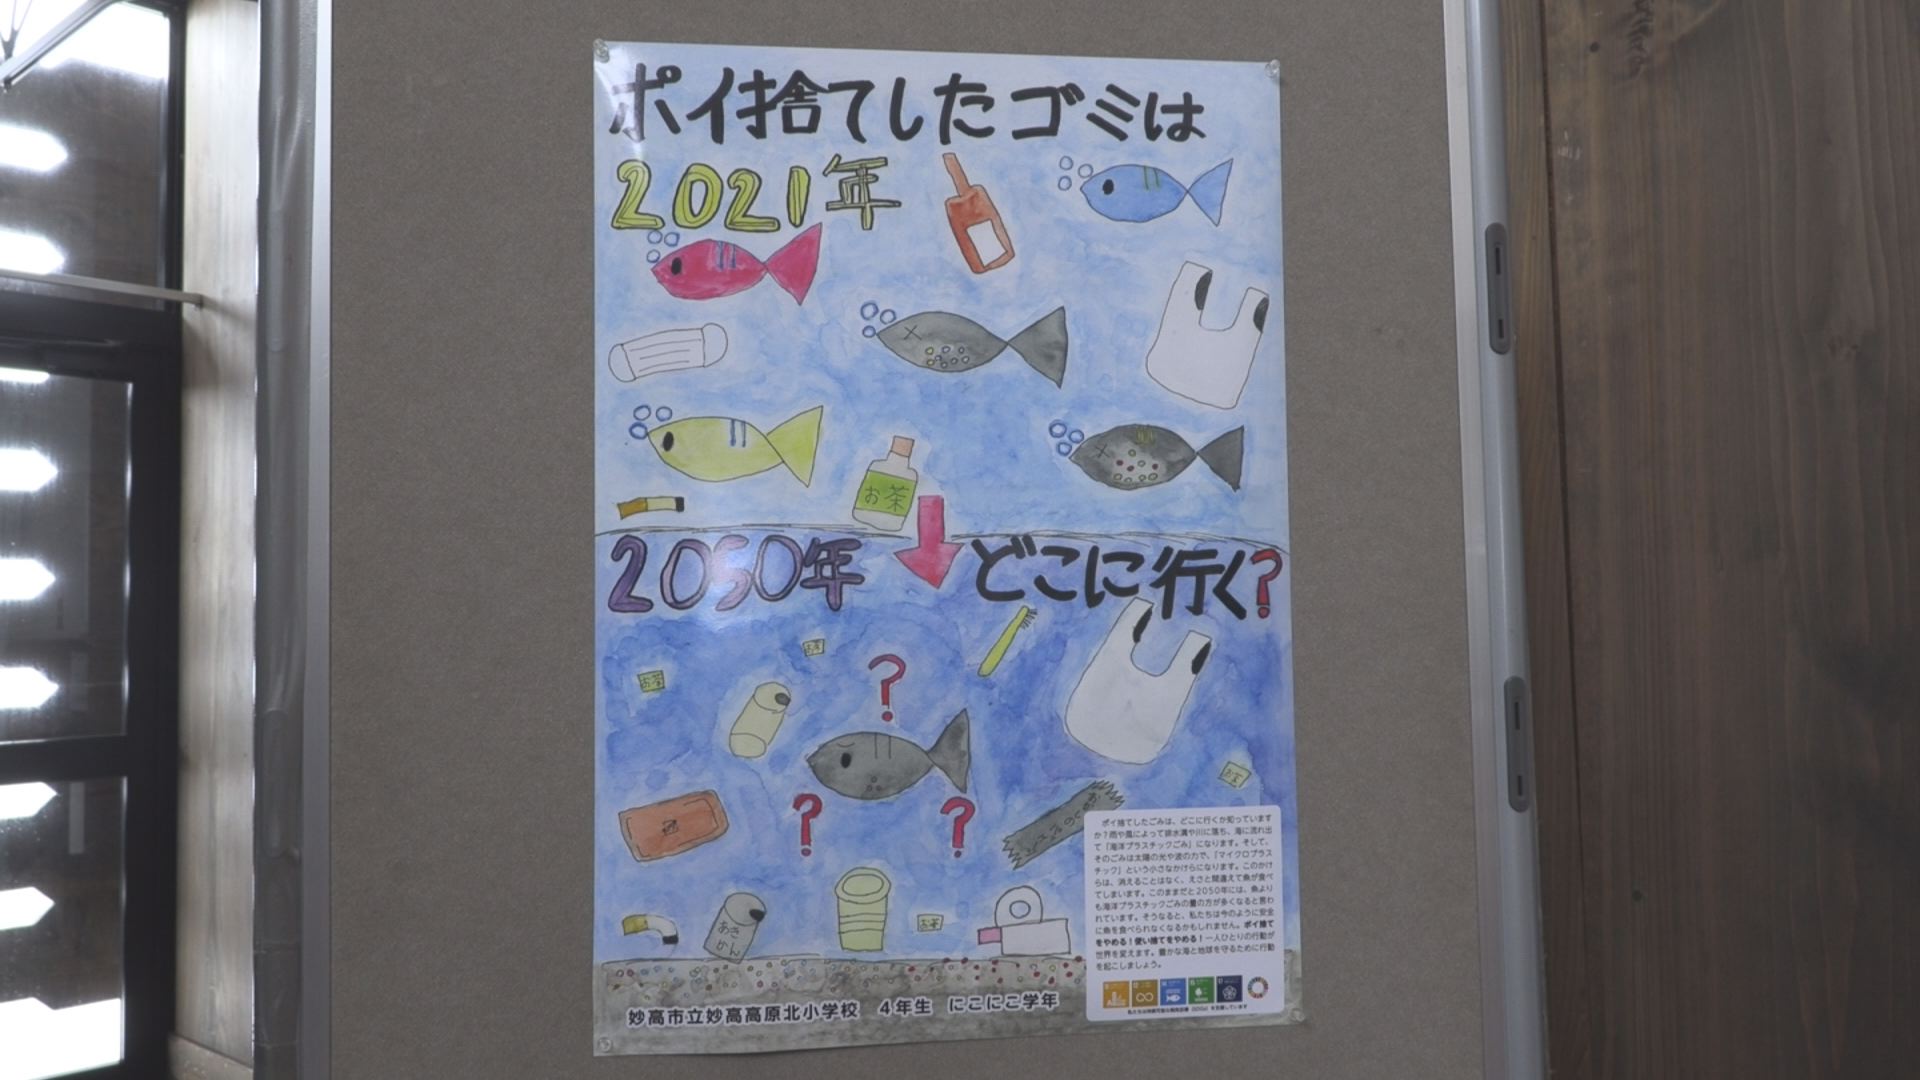 ポイ捨てしたゴミは
2021年
お茶
2050年
どこに行く?
お茶
お茶
お茶
あき
かん
お茶
ポイ捨てしたごみは、どこに行くか知っています
か?雨や風によって排水溝や川に落ち、海に流れ出
て「海洋プラスチックごみ」になります。そして、
そのごみは太陽の光や波の力で、「マイクロプラス
チック」という小さなかけらになります。このかけ
らは、消えることはなく、えさと間違えて魚が食べ
てしまいます。このままだと2050年には、魚より
も海洋プラスチックごみの量の方が多くなると言わ
れています。そうなると、私たちは今のように安全
に魚を食べられなくなるかもしれません。ポイ捨て
をやめる!使い捨てをやめる!一人ひとりの行動が
世界を変えます。豊かな海と地球を守るために行動
を起こしましょう。
私たちは持続可能な開発目標(SDGs)を支援しています
妙高市立妙高高原北小学校 4年生 にこにこ学年